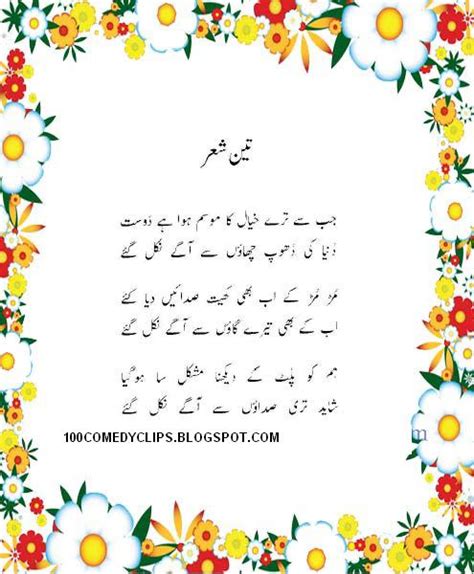 تین شعر
جب سے ترے خیال کا موسم ہوا ہے دَوست
دُنیا کی دُھوپ چھاؤں سے آگے نکل گئے
مَڑ مَڑ کے اب بھی کھیت صدائیں دیا کئے
اب کے بھی تیرے گاؤں سے آگے نکل گئے
ہم کو پلٹ کے دیکھنا مشکل سا ہوگیا
شاید تری صداؤں سے آگے نکل گئے
100COMEDYCLIPS.BLOGSPOT.COM
m